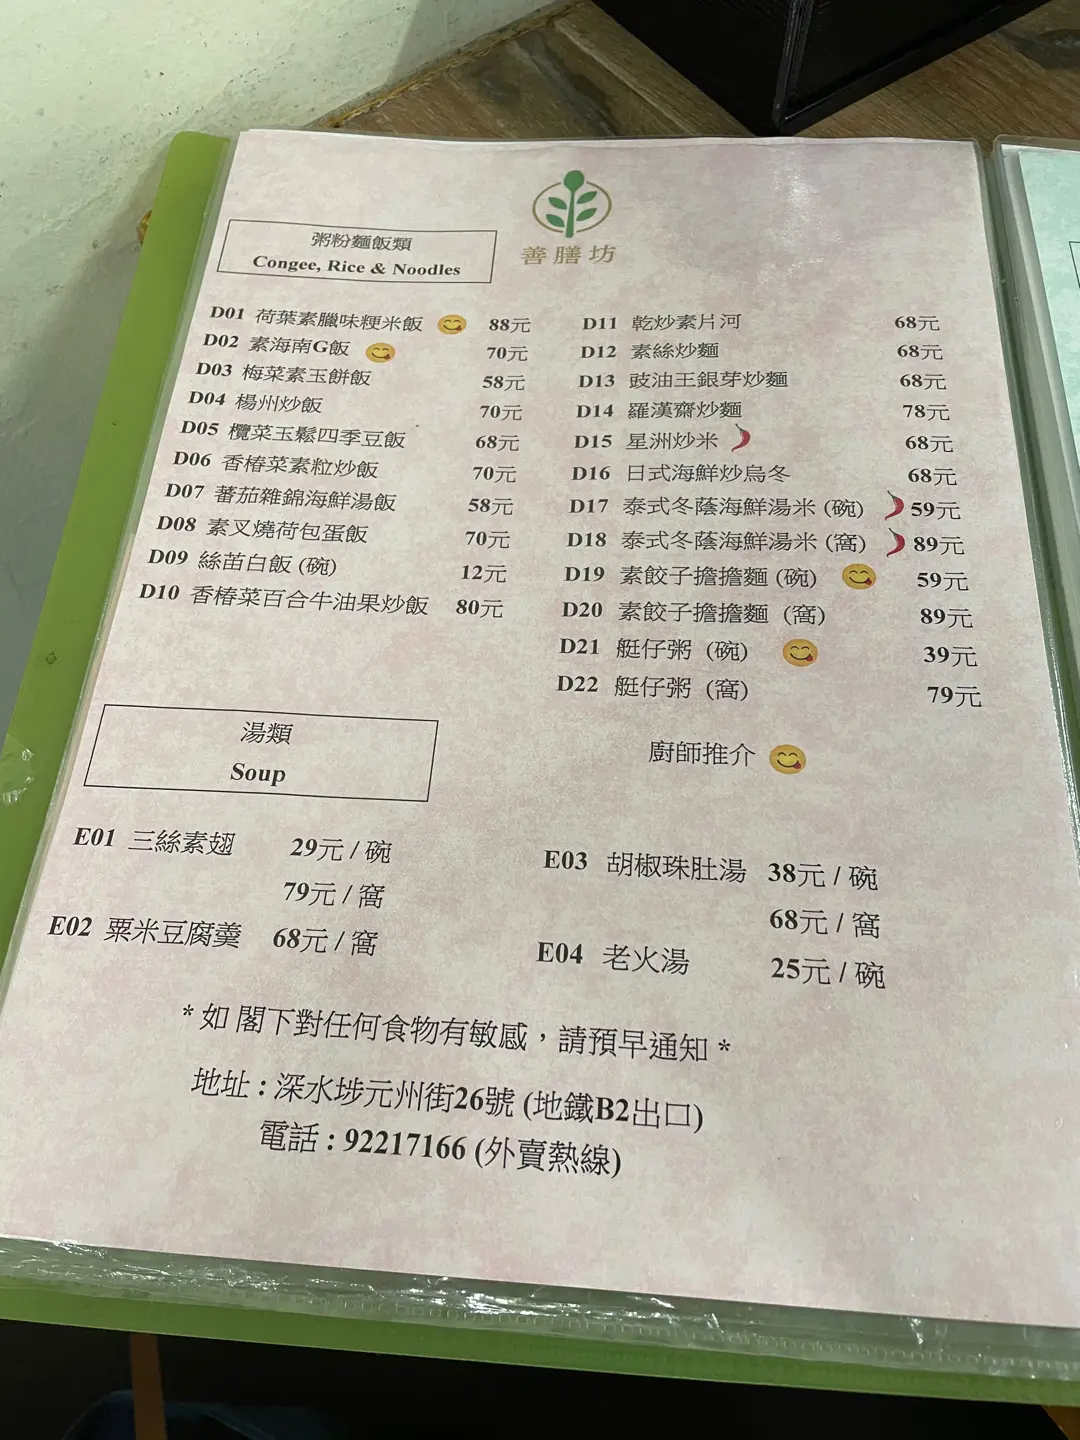 善膳坊
粥粉麵飯類
Congee, Rice & Noodles
D01 荷葉素臘味粳米飯 88元
D02 素海南G飯 70元
D03 梅菜素玉餅飯 58元
D04 楊州炒飯 70元
D05 欖菜玉鬆四季豆飯 68元
D06 香椿菜素粒炒飯 70元
D07 蕃茄雜錦海鮮湯飯 58元
D08 素叉燒荷包蛋飯 70元
D09 絲苗白飯 (碗) 12元
D10 香椿菜百合牛油果炒飯 80元
D11 乾炒素片河 68元
D12 素絲炒麵 68元
D13 豉油王銀芽炒麵 68元
D14 羅漢齋炒麵 78元
D15 星洲炒米 68元
D16 日式海鮮炒烏冬 68元
D17 泰式冬蔭海鮮湯米 (碗) 59元
D18 泰式冬蔭海鮮湯米 (窩) 89元
D19 素餃子擔擔麵 (碗) 59元
D20 素餃子擔擔麵 (窩) 89元
D21 艇仔粥 (碗) 39元
D22 艇仔粥 (窩) 79元
廚師推介
湯類
Soup
E01 三絲素翅 29元 / 碗
79元 / 窩
E02 粟米豆腐羹 68元 / 窩
E03 胡椒珠肚湯 38元 / 碗
68元 / 窩
E04 老火湯 25元 / 碗
* 如 閣下對任何食物有敏感，請預早通知 *
地址 : 深水埗元州街26號 (地鐵B2出口)
電話 : 92217166 (外賣熱線)